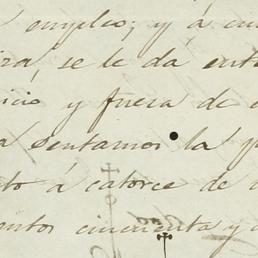 empleo; y á
se le dá
icio y fuera de
sentamos la
to á catorce de
entos cincuenta y